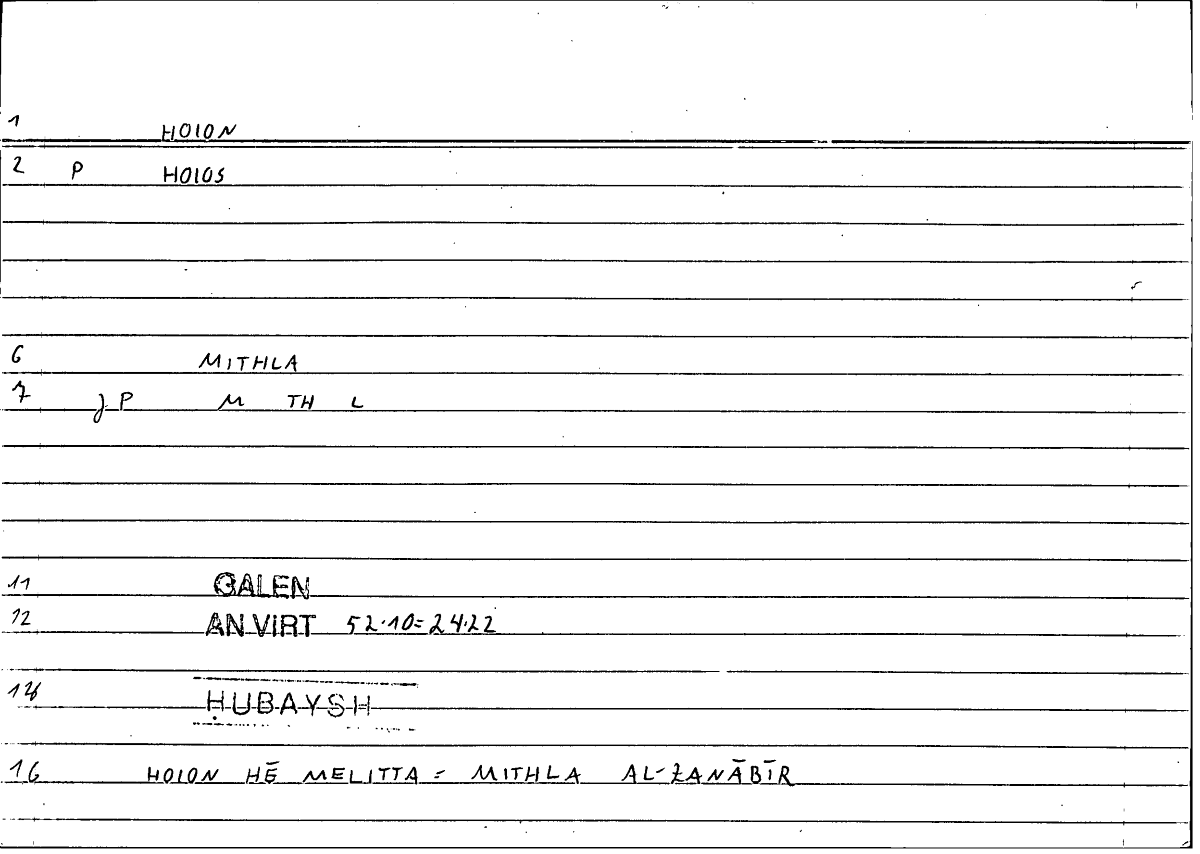 1 HOION
2 P HOIOS
6 MITHLA
7 J P M TH L
11 GALEN
12 AN VIRT 52.10=24.22
14 ḤUBAYSH
16 HOION HĒ MELITTA = MITHLA AL-ZANĀBĪR